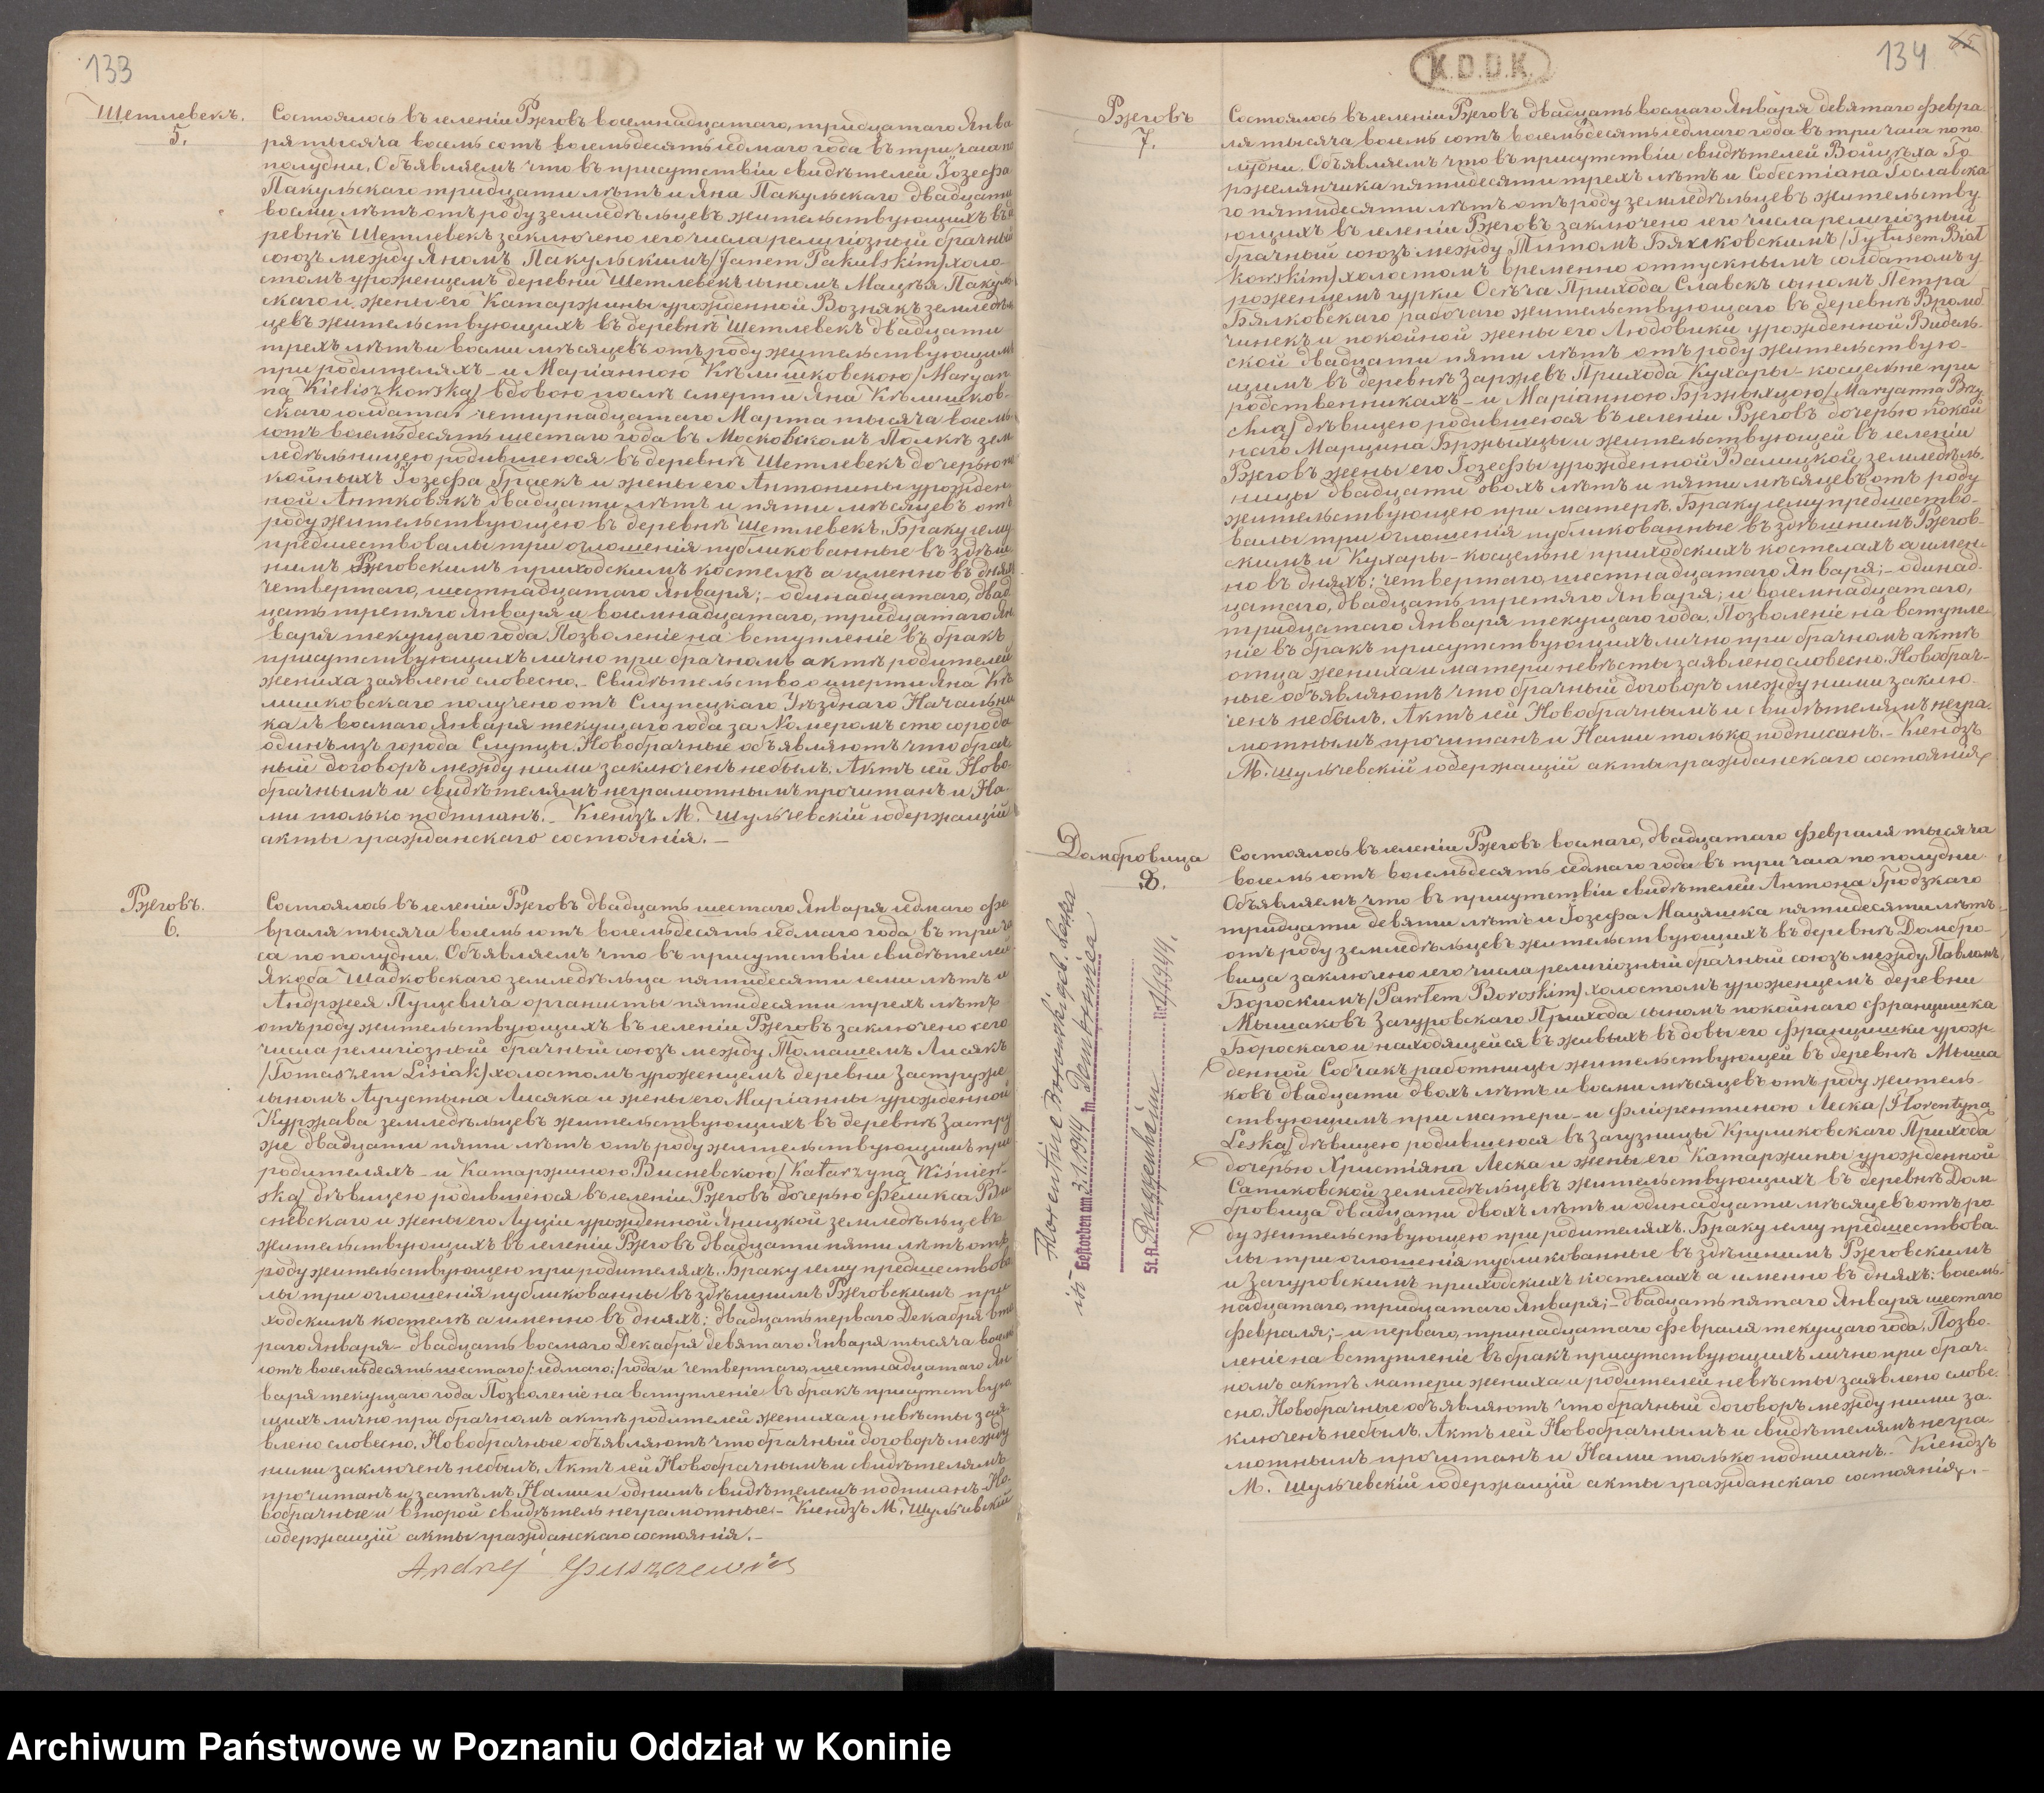 133
Шетлевекъ.
5.
Состоялось въ селеніи Ржговъ восемнадцатаго, тридцатаго Янва
ря тысяча восемь сотъ восемьдесятъ седмаго года въ три часа по
полудни. Объявляемъ что въ присутствіи свидѣтелей Іозефа
Пакульскаго тридцати лѣтъ и Яна Пакульскаго двадцати
восми лѣтъ отъ роду земледѣльцевъ жительствующихъ въ де
ревнѣ Шетлевекъ заключено сего числа религіозный брачный
союзъ между Яномъ Пакульскимъ /Janem Pakulskim/ холо
стомъ уроженцемъ деревни Шетлевекъ сыномъ Мацѣя Пакуль
скаго и жены его Катаржины урожденной Вознякъ земледѣль
цевъ жительствующихъ въ деревнѣ Шетлевекъ двадцати
трехъ лѣтъ и восми мѣсяцевъ отъ роду жительствующимъ
при родителяхъ – и Маріанною Кѣлишковскою /Maryan
ną Kieliszkowską/ вдовою послѣ смерти Яна Кѣлишков-
скаго солдата четырнадцатаго Марта тысяча восемь
сотъ восемьдесятъ шестаго года въ Московскомъ Полкѣ зем
ледѣльницею родившеюся въ деревнѣ Шетлевекъ дочерью по
койныхъ Іозефа Граекъ и жены его Антонины урожден
ной Антковякъ двадцати лѣтъ и пяти мѣсяцевъ отъ
роду жительствующею въ деревнѣ Шетлевекъ. Браку сему
предшествовалы три оглошенія публикованные въ здѣш
нимъ Ржговскимъ приходскимъ костелѣ а именно въ дняхъ
четвертаго, шестнадцатаго Января; – одинадцатаго, двад
цать третяго Января и восемнадцатаго, тридцатаго Ян
варя текущаго года. Позволеніе на вступленіе въ бракъ
присутствующихъ лично при брачномъ актѣ родителей
жениха заявлено словесно. – Свидѣтельство о смерти Яна Кѣ
лишковскаго получено отъ Слупецкаго Уѣзднаго Начальни
ка съ восмаго Января текущаго года за Номеромъ сто сорода
одинъ изъ города Слупцы. Новобрачные объявляютъ что брач
ный договоръ между ними заключенъ небылъ. Актъ сей Ново
брачнымъ и свидѣтелямъ неграмотнымъ прочитанъ и На-
ми только подписанъ. – Ксендзъ М. Шульчевскій содержащій
акты гражданскаго состоянія. –
Ржговъ.
6.
Состоялось въ селеніи Ржговъ двадцать шестаго Января седмаго Фе
враля тысячи восемь сотъ восемьдесятъ седмаго года въ три ча
са по полудни. Объявляемъ что въ присутствіи свидѣтелей
Якоба Шадковскаго земледѣльца пятидесяти семи лѣтъ и
Андржея Пущевича органисты пятидесяти трехъ лѣтъ
отъ роду жительствующихъ въ селеніи Ржговъ заключено сего
числа религіозный брачный союзъ между Томашемъ Лисякъ
/Tomaszem Lisiak/ холостомъ уроженцемъ деревни Заструже
сыномъ Аугустына Лисяка и жены его Маріанны урожденной
Куржава земледѣльцевъ жительствующихъ въ деревнѣ Застру
же двадцати пяти лѣтъ отъ роду жительствующимъ при
родителяхъ – и Катаржиною Висневскою /Katarzyną Wiśniew-
ską/ дѣвицею родившеюся въ селеніи Ржговъ дочерью Феликса Ви
сневскаго и жены его Луціи урожденной Яницкой земледѣльцевъ
жительствующихъ въ селеніи Ржговъ двадцати пяти лѣтъ отъ
роду жительствующею при родителяхъ. Браку сему предшествова
лы три оглошенія публикованны въ здѣшнимъ Ржговскимъ при
ходскимъ костелѣ а именно въ дняхъ: двадцать перваго Декабря вто
раго Января – двадцать восмаго Декабря девятаго Января тысяча восемь
сотъ восемьдесятъ шестаго /:седмаго:/ года и четвертаго, шестнадцатаго Ян
варя текущаго года. Позволеніе на вступленіе въ бракъ присутствую
щихъ лично при брачномъ актѣ родителей жениха и невѣсты зая
влено словесно. Новобрачные объявляютъ что брачный договоръ между
ними заключенъ небылъ. Актъ сей Новобрачнымъ и свидѣтелямъ
прочитанъ и затѣмъ Нами и однимъ свидѣтелемъ подписанъ. Но-
вобрачные и второй свидѣтель неграмотные. – Ксендзъ М. Шульчевскій
содержащій акты гражданскаго состоянія. –
Andrzej Puszczewicz
K.D.D.K.
134
Ржговъ
7.
Состоялось въ селеніи Ржговъ двадцать восмаго Января девятаго Февра
ля тысяча восемь сотъ восемьдесятъ седмаго года въ три часа по по
лудни. Объявляемъ что въ присутствіи свидѣтелей Войцѣха Го
ржелянчика пятидесяти трехъ лѣтъ и Собестіана Гославска
го пятидесяти лѣтъ отъ роду земледѣльцевъ жительству
ющихъ въ селеніи Ржговъ заключено сего числа религіозный
брачный союзъ между Титомъ Бялковскимъ /Tytusem Biał
kowskim/ холостомъ временно отпускнымъ солдатомъ у
роженцемъ гурки Осѣча Прихода Славскъ сыномъ Петра
Бялковскаго рабочаго жительствующаго въ деревнѣ Вромб
чинекъ и покойной жены его Людовики урожденной Видель-
ской двадцати пяти лѣтъ отъ роду жительствую-
щимъ въ деревнѣ Заржевъ Прихода Кухары-косцельне при
родственникахъ – и Маріанною Бржыхцою /Maryanną Brzy
chcą/ дѣвицею родившеюся въ селеніи Ржговъ дочерью покой
наго Марцина Бржыхцы и жительствующей въ селеніи
Ржговъ жены его Іозефы урожденной Валицкой земледѣль
ницы двадцати двохъ лѣтъ и пяти мѣсяцевъ отъ роду
жительствующею при матерѣ. Браку сему предшество-
валы три оглошенія публикованные въ здѣшнимъ Ржгов-
скимъ и Кухары-косцельне приходскихъ костелахъ а имен-
но въ дняхъ: четвертаго, шестнадцатаго Января; – одинад-
цатаго, двадцать третяго Января; и восемнадцатаго,
тридцатаго Января текущаго года. Позволеніе на вступле
ніе въ бракъ присутствующихъ лично при брачномъ актѣ
отца жениха и матери невѣсты заявлено словесно. Новобрач-
ные объявляютъ что брачный договоръ между ними заклю-
ченъ небылъ. Актъ сей Новобрачнымъ и свидѣтелямъ негра-
мотнымъ прочитанъ и Нами только подписанъ. – Ксендзъ
М. Шульчевскій содержащій акты гражданскаго состоянія
Домбровица
8.
Состоялось въ селеніи Ржговъ восмаго, двадцатаго Февраля тысяча
восемь сотъ восемьдесятъ седмаго года въ три часа по полудни.
Объявляемъ что въ присутствіи свидѣтелей Антона Гродзкаго
тридцати девяти лѣтъ и Іозефа Мацяшка пятидесяти лѣтъ
отъ роду земледѣльцевъ жительствующихъ въ деревнѣ Домбро-
вица заключено сего числа религіозный брачный союзъ между Павломъ
Бороскимъ /Pawłem Boroskim/ холостомъ уроженцемъ деревни
Мышаковъ Загуровскаго Прихода сыномъ покойнаго Францишка
Бороскаго и находящейся въ живыхъ вдовы его Францишки урож-
денной Собчакъ работницы жительствующей въ деревнѣ Мыша
ковъ двадцати двохъ лѣтъ и восми мѣсяцевъ отъ роду житель-
ствующимъ при матери – и Флорентиною Леска /Florentyną
Leską/ дѣвицею родившеюся въ Загузницы Круликовскаго Прихода
дочерью Христіяна Леска и жены его Катаржины урожденной
Сатиковской земледѣльцевъ жительствующихъ въ деревнѣ Дом-
бровица двадцати двохъ лѣтъ и одинадцати мѣсяцевъ отъ ро
ду жительствующею при родителяхъ. Браку сему предшествова-
лы три оглошенія публикованные въ здѣшнимъ Ржговскимъ
и Загуровскимъ приходскихъ костелахъ а именно въ дняхъ: восемь-
надцатаго, тридцатаго Января; – двадцать пятаго Января шестаго
Февраля; – и перваго, тринадцатаго Февраля текущаго года. Позво-
леніе на вступленіе въ бракъ присутствующихъ лично при брач-
номъ актѣ матери жениха и родителей невѣсты заявлено слове-
сно. Новобрачные объявляютъ что брачный договоръ между ними за-
ключенъ небылъ. Актъ сей Новобрачнымъ и свидѣтелямъ негра-
мотнымъ прочитанъ и Нами только подписанъ. – Ксендзъ
М. Шульчевскій содержащій акты гражданскаго состоянія. –
Florentine Boroski geb. Leska
ist Gestorben am 3.1.1944 in Dembrowica
St.A.
Archiwum Państwowe w Poznaniu Oddział w Koninie